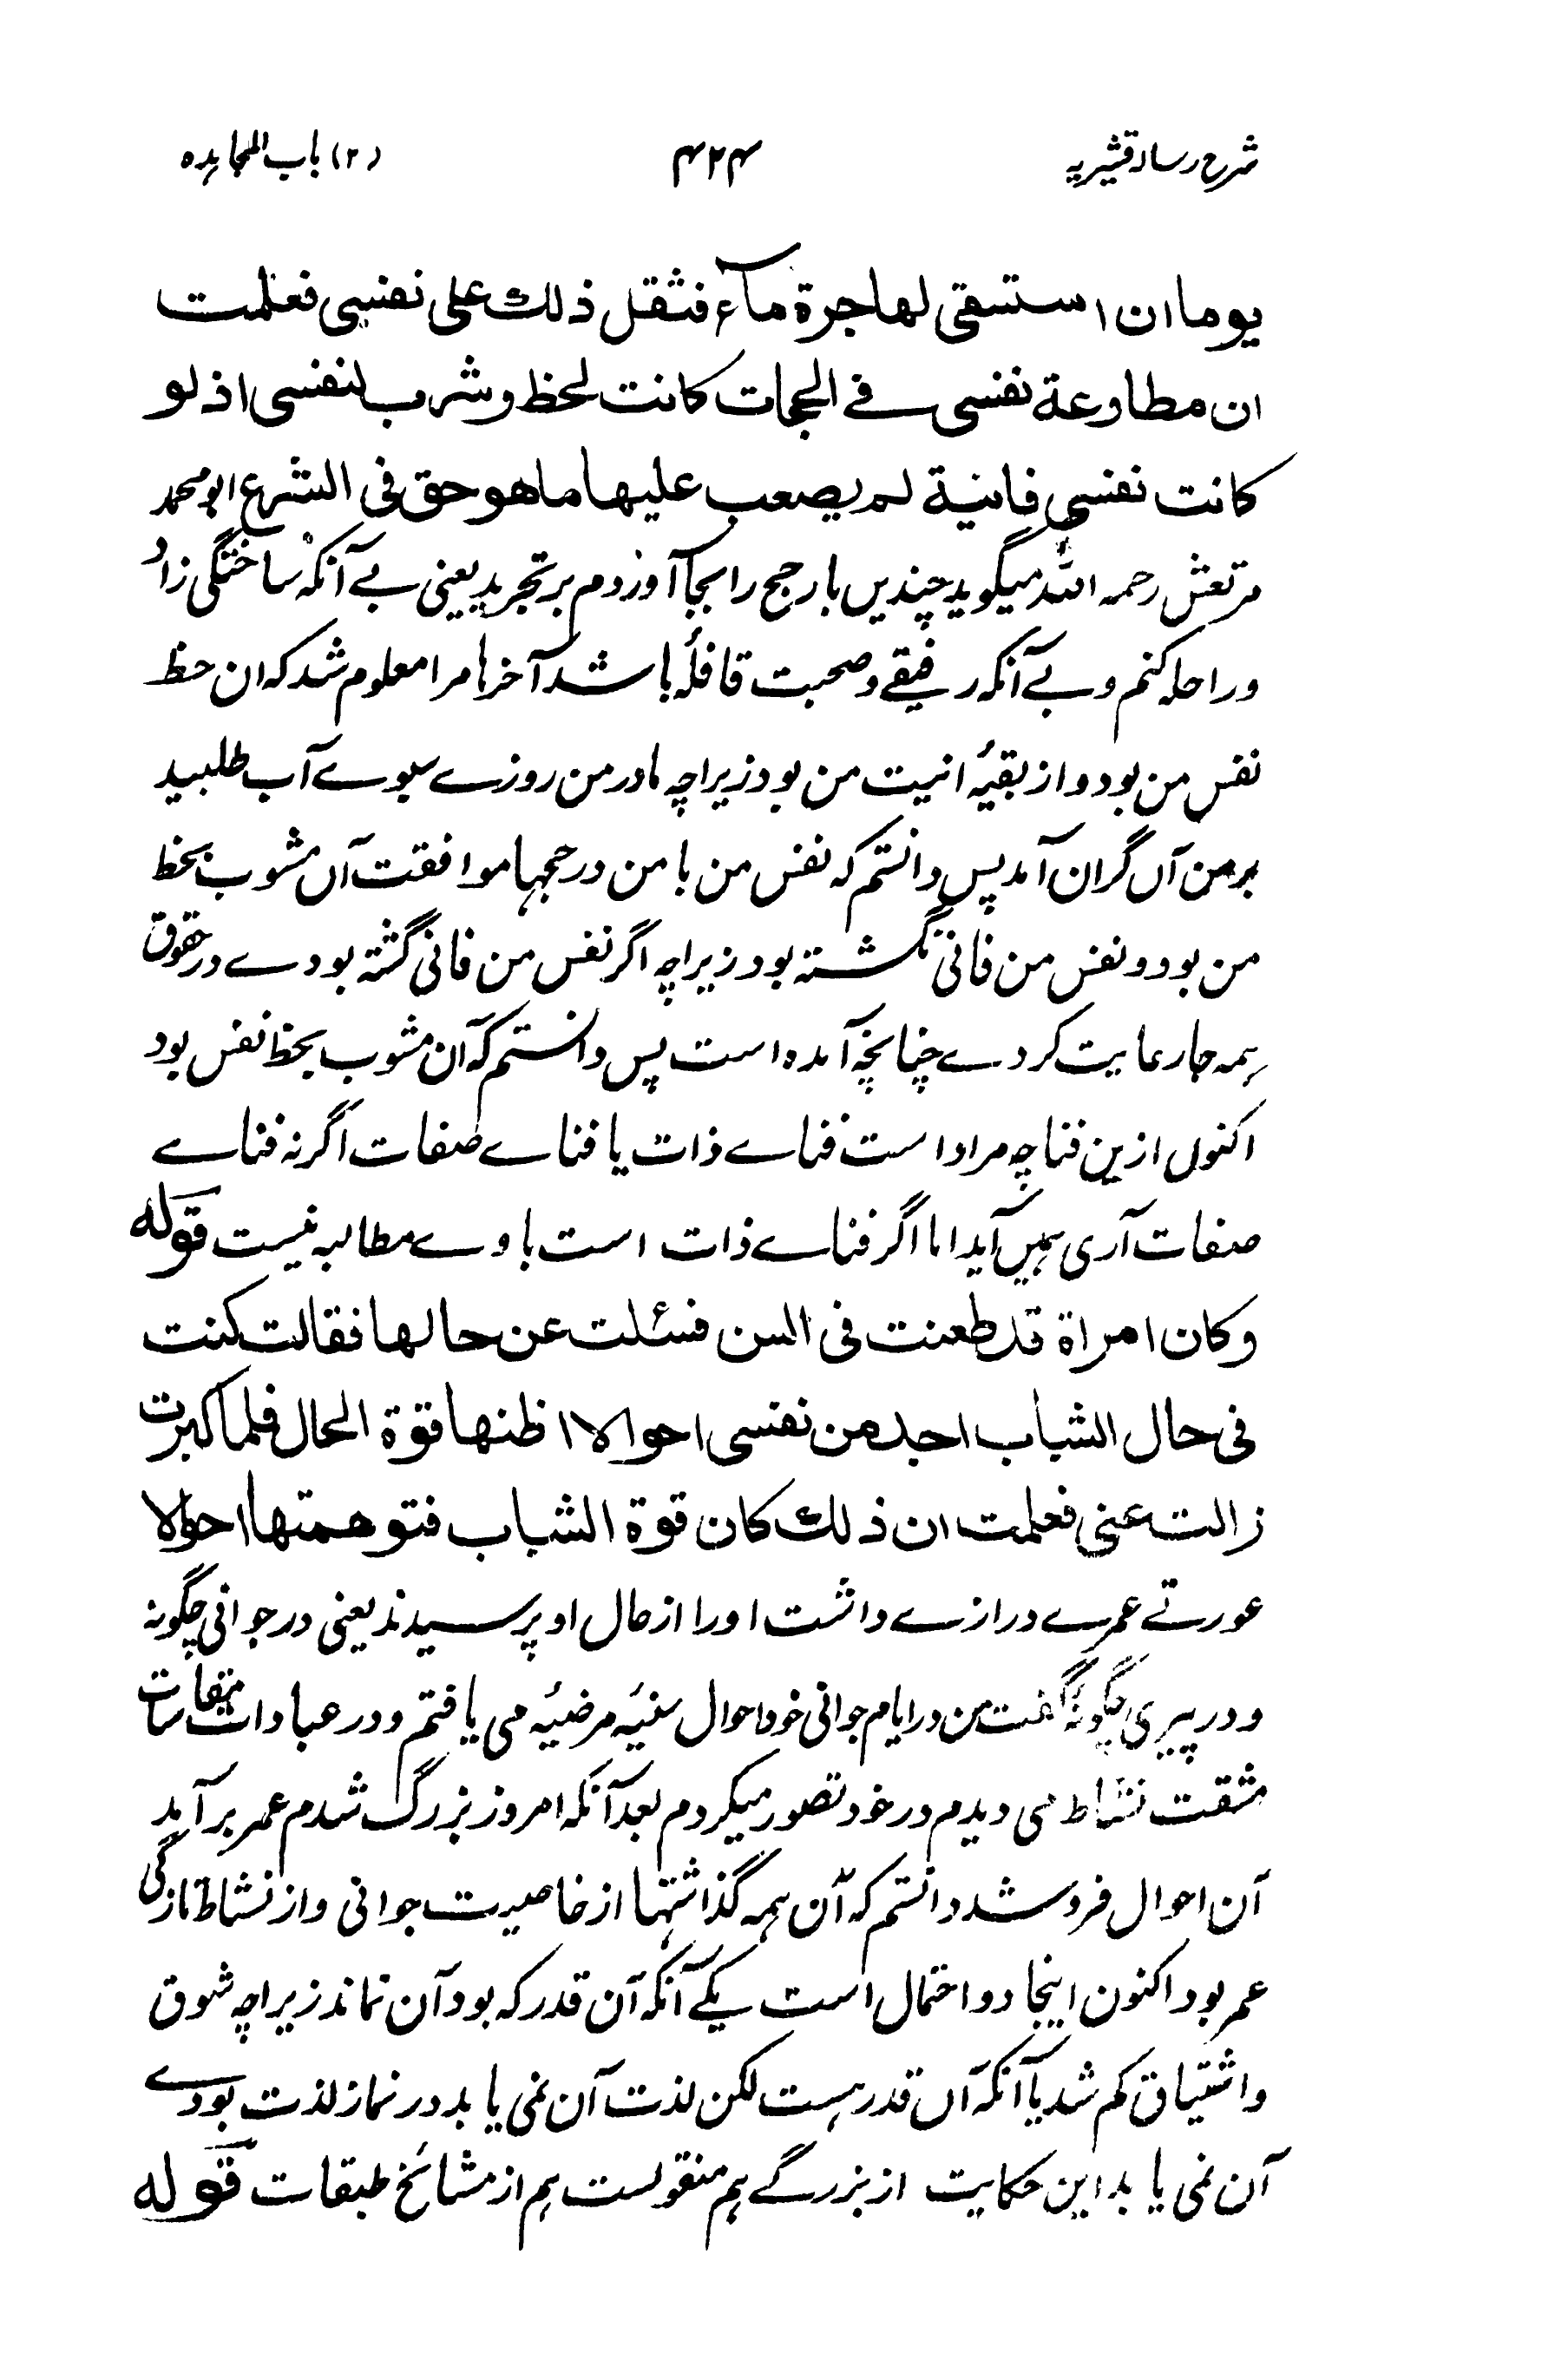 شرح رسالہ قشیریہ ۴۲۴ (۲) باب المجاہدہ
یوما ان استسقی لها جرة مآء فثقل ذلك علی نفسی فعلمت
ان مطاوعة نفسی فی الحجات کانت لحظ وشرب لنفسی اذ لو
کانت نفسی فانیة لم یصعب علیها ما هو حق فی الشرع ابو محمد
مرتعش رحمہ اللہ میگوید چندیں بار حج را بجا آوردم بر تجرید یعنی بے آنکہ ساختگی زاد
وراحلہ کنم و بے آنکہ رفیقے و صحبت قافلۂ باشد آخرہا مرا معلوم شد کہ ان حظ
نفس من بود و از بقیۂ انیت من بود زیراچہ مادر من روزے سبوے آب طلبید
بر من آں گران آمد پس دانستم کہ نفس من با من در حجہا موافقت آں مشوب بحظ
من بود و نفس من فانی نگشتہ بود زیراچہ اگر نفس من فانی گشتہ بودے در حقوق
ہمہ جا رعایت کردے چنانچہ آمدہ است پس دانستم کہ آن مشوب بحظ نفس بود
اکنوں ازین فنا چہ مراد است فناے ذات یا فناے صفات اگر نہ فناے
صفات آری ہمیں آید اما اگر فناے ذات است با وے مطالبہ نیست قوله
وکان امراة قد طعنت فی السن فسئلت عن حالها فقالت کنت
فی حال الشباب اجد من نفسی احوالا اظنها قوة الحال فلما کبرت
زالت عنی فعلمت ان ذلك کان قوة الشباب فتوهمتها احوالا
عورتے عمرے درازے داشت اورا از حال او پرسیدند یعنی در جوانی چگونہ
و در پیری چگونۂ گفت من در ایام جوانی خود احوال سنیہ مرضیہ می یافتم و در عبادات مقاسات
مشقت نشاط می دیدم در خود تصور میکردم بعد آنکہ امروز بزرگ شدم عمر برآمد
آن احوال فرو شد دانستم کہ آن ہمہ گذاشتہا از خاصیت جوانی و از نشاط تازگی
عمر بود اکنون اینجا دو احتمال است یکے آنکہ آن قدر کہ بود آن نماند زیراچہ شوق
و اشتیاق کم شد یا آنکہ آں قدر ہست لکن لذت آن نمی یابد در نماز لذت بودے
آن نمی یابد این حکایت از بزرگے ہم منقولست ہم از مشائخ طبقات قوله